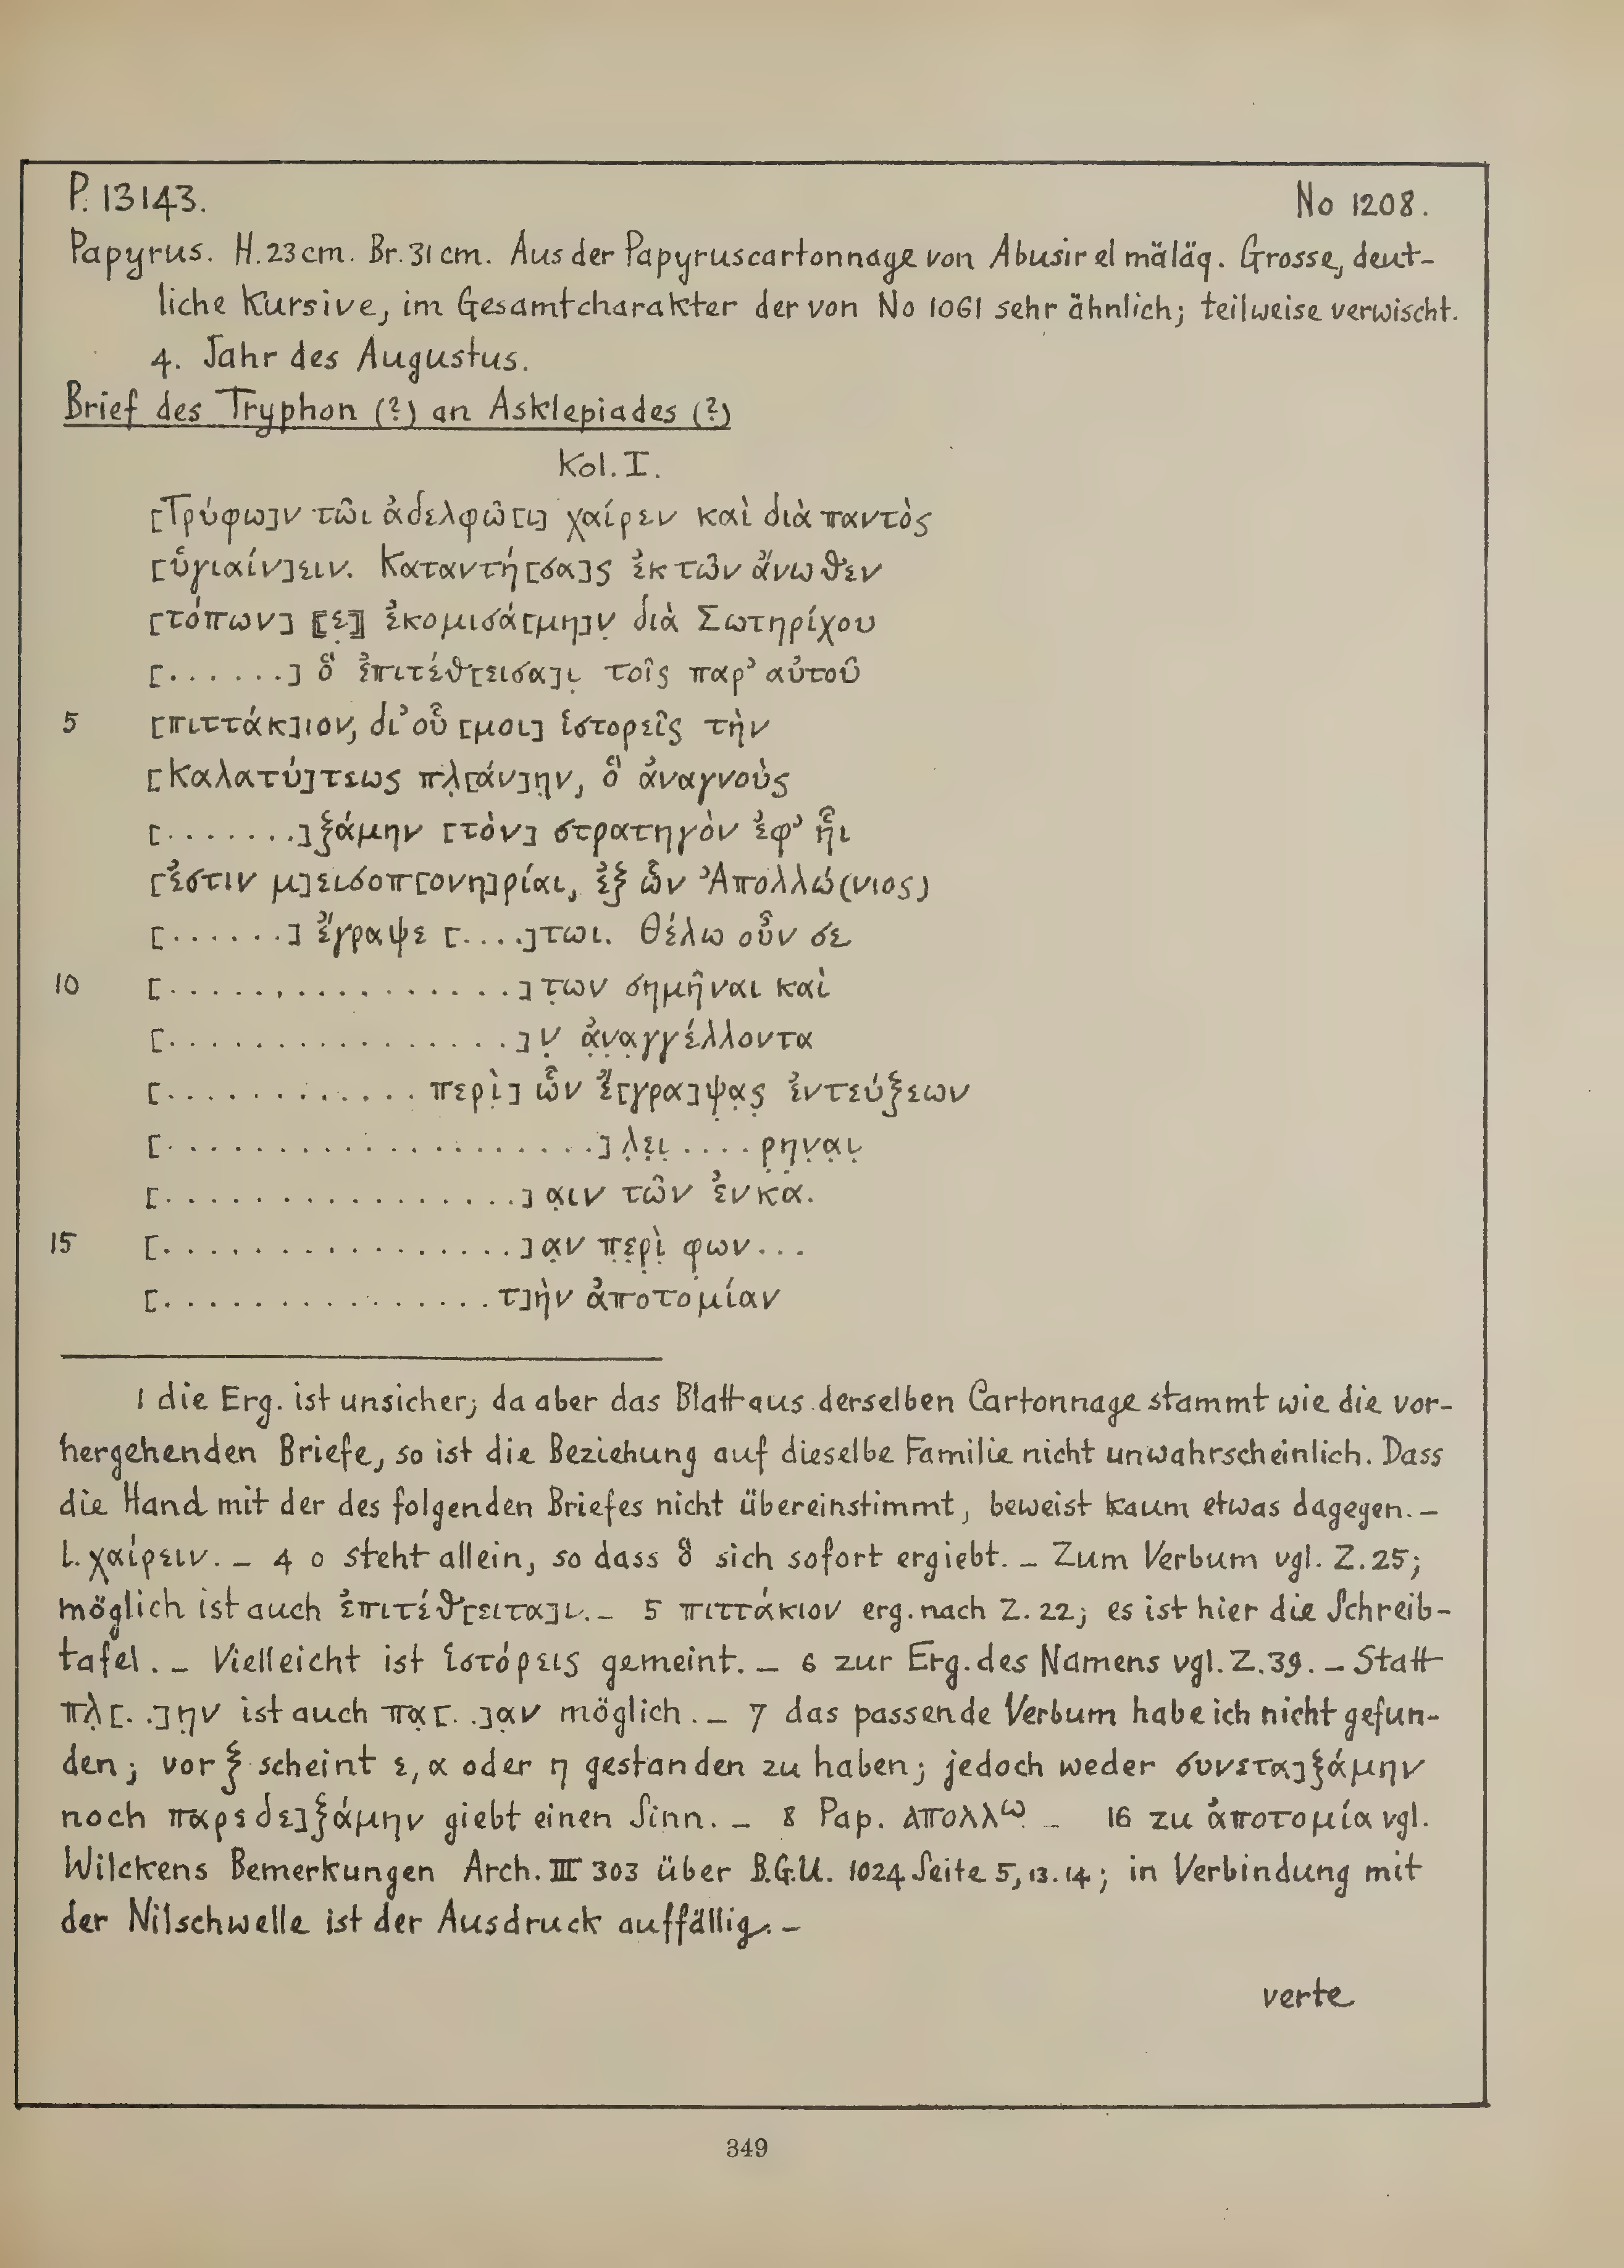 P. 13143.
No 1208.
Papyrus. H. 23 cm. Br. 31 cm. Aus der Papyruscartonnage von Abusir el mäläq. Grosse, deut-
liche Kursive, im Gesamtcharakter der von No 1061 sehr ähnlich; teilweise verwischt.
4. Jahr des Augustus.
Brief des Tryphon (?) an Asklepiades (?)
Kol. I.
[Τρύφω]ν τῶι ἀδελφῶ[ι] χαίρεν καὶ διὰ παντὸς
[ὑγιαίν]ειν. Καταντή[σα]ς ἐκ τῶν ἄνωθεν
[τόπων] ⟦ε̣⟧ ἐκομισά[μη]ν̣ διὰ Σωτηρίχου
[.......] ὃ ἐπιτέθ[εισα]ι̣ τοῖς παρ' αὐτοῦ
5 [πιττάκ]ιον, δι' οὗ [μοι] ἱστορεῖς τὴν
[Καλατύ]τεως πλ̣[άν]η̣ν, ὃ ἀναγνοὺς
[........]ξάμην [τὸν] στρατηγὸν ἐφ' ἧι
[ἐστιν μ]εισοπ[ονη]ρίαι, ἐξ ὧν Ἀπολλώ(νιος)
[.......] ἔγραψε [....]τωι. Θέλω οὖν σε
10 [.................]τ̣ων σημῆναι καὶ
[.................]ν̣ ἀ̣ν̣α̣γγέλλοντα
[............ περὶ] ὧν ἔ[γρα]ψ̣α̣ς̣ ἐντεύξεων
[.....................]λ̣ε̣ι̣....ρ̣η̣ν̣α̣ι̣
[.................]α̣ιν τῶν ἐνκα.
15 [.................]α̣ν π̣ε̣ρ̣ὶ̣ φ̣ων...
[................τ]ὴν ἀποτομίαν
1 die Erg. ist unsicher; da aber das Blatt aus derselben Cartonnage stammt wie die vor-
hergehenden Briefe, so ist die Beziehung auf dieselbe Familie nicht unwahrscheinlich. Dass
die Hand mit der des folgenden Briefes nicht übereinstimmt, beweist kaum etwas dagegen. –
l. χαίρειν. – 4 ο steht allein, so dass ὃ sich sofort ergiebt. – Zum Verbum vgl. Z. 25;
möglich ist auch ἐπιτέθ[ειτα]ι. – 5 πιττάκιον erg. nach Z. 22; es ist hier die Schreib-
tafel. – Vielleicht ist ἱστόρεις gemeint. – 6 zur Erg. des Namens vgl. Z. 39. – Statt
πλ̣[..]η̣ν ist auch πα̣[..]α̣ν möglich. – 7 das passende Verbum habe ich nicht gefun-
den; vor ξ scheint ε, α oder η gestanden zu haben; jedoch weder συνετα]ξάμην
noch παρεδε]ξάμην giebt einen Sinn. – 8 Pap. απολλω – 16 zu ἀποτομία vgl.
Wilckens Bemerkungen Arch. III 303 über B.G.U. 1024 Seite 5, 13. 14; in Verbindung mit
der Nilschwelle ist der Ausdruck auffällig. –
verte
349